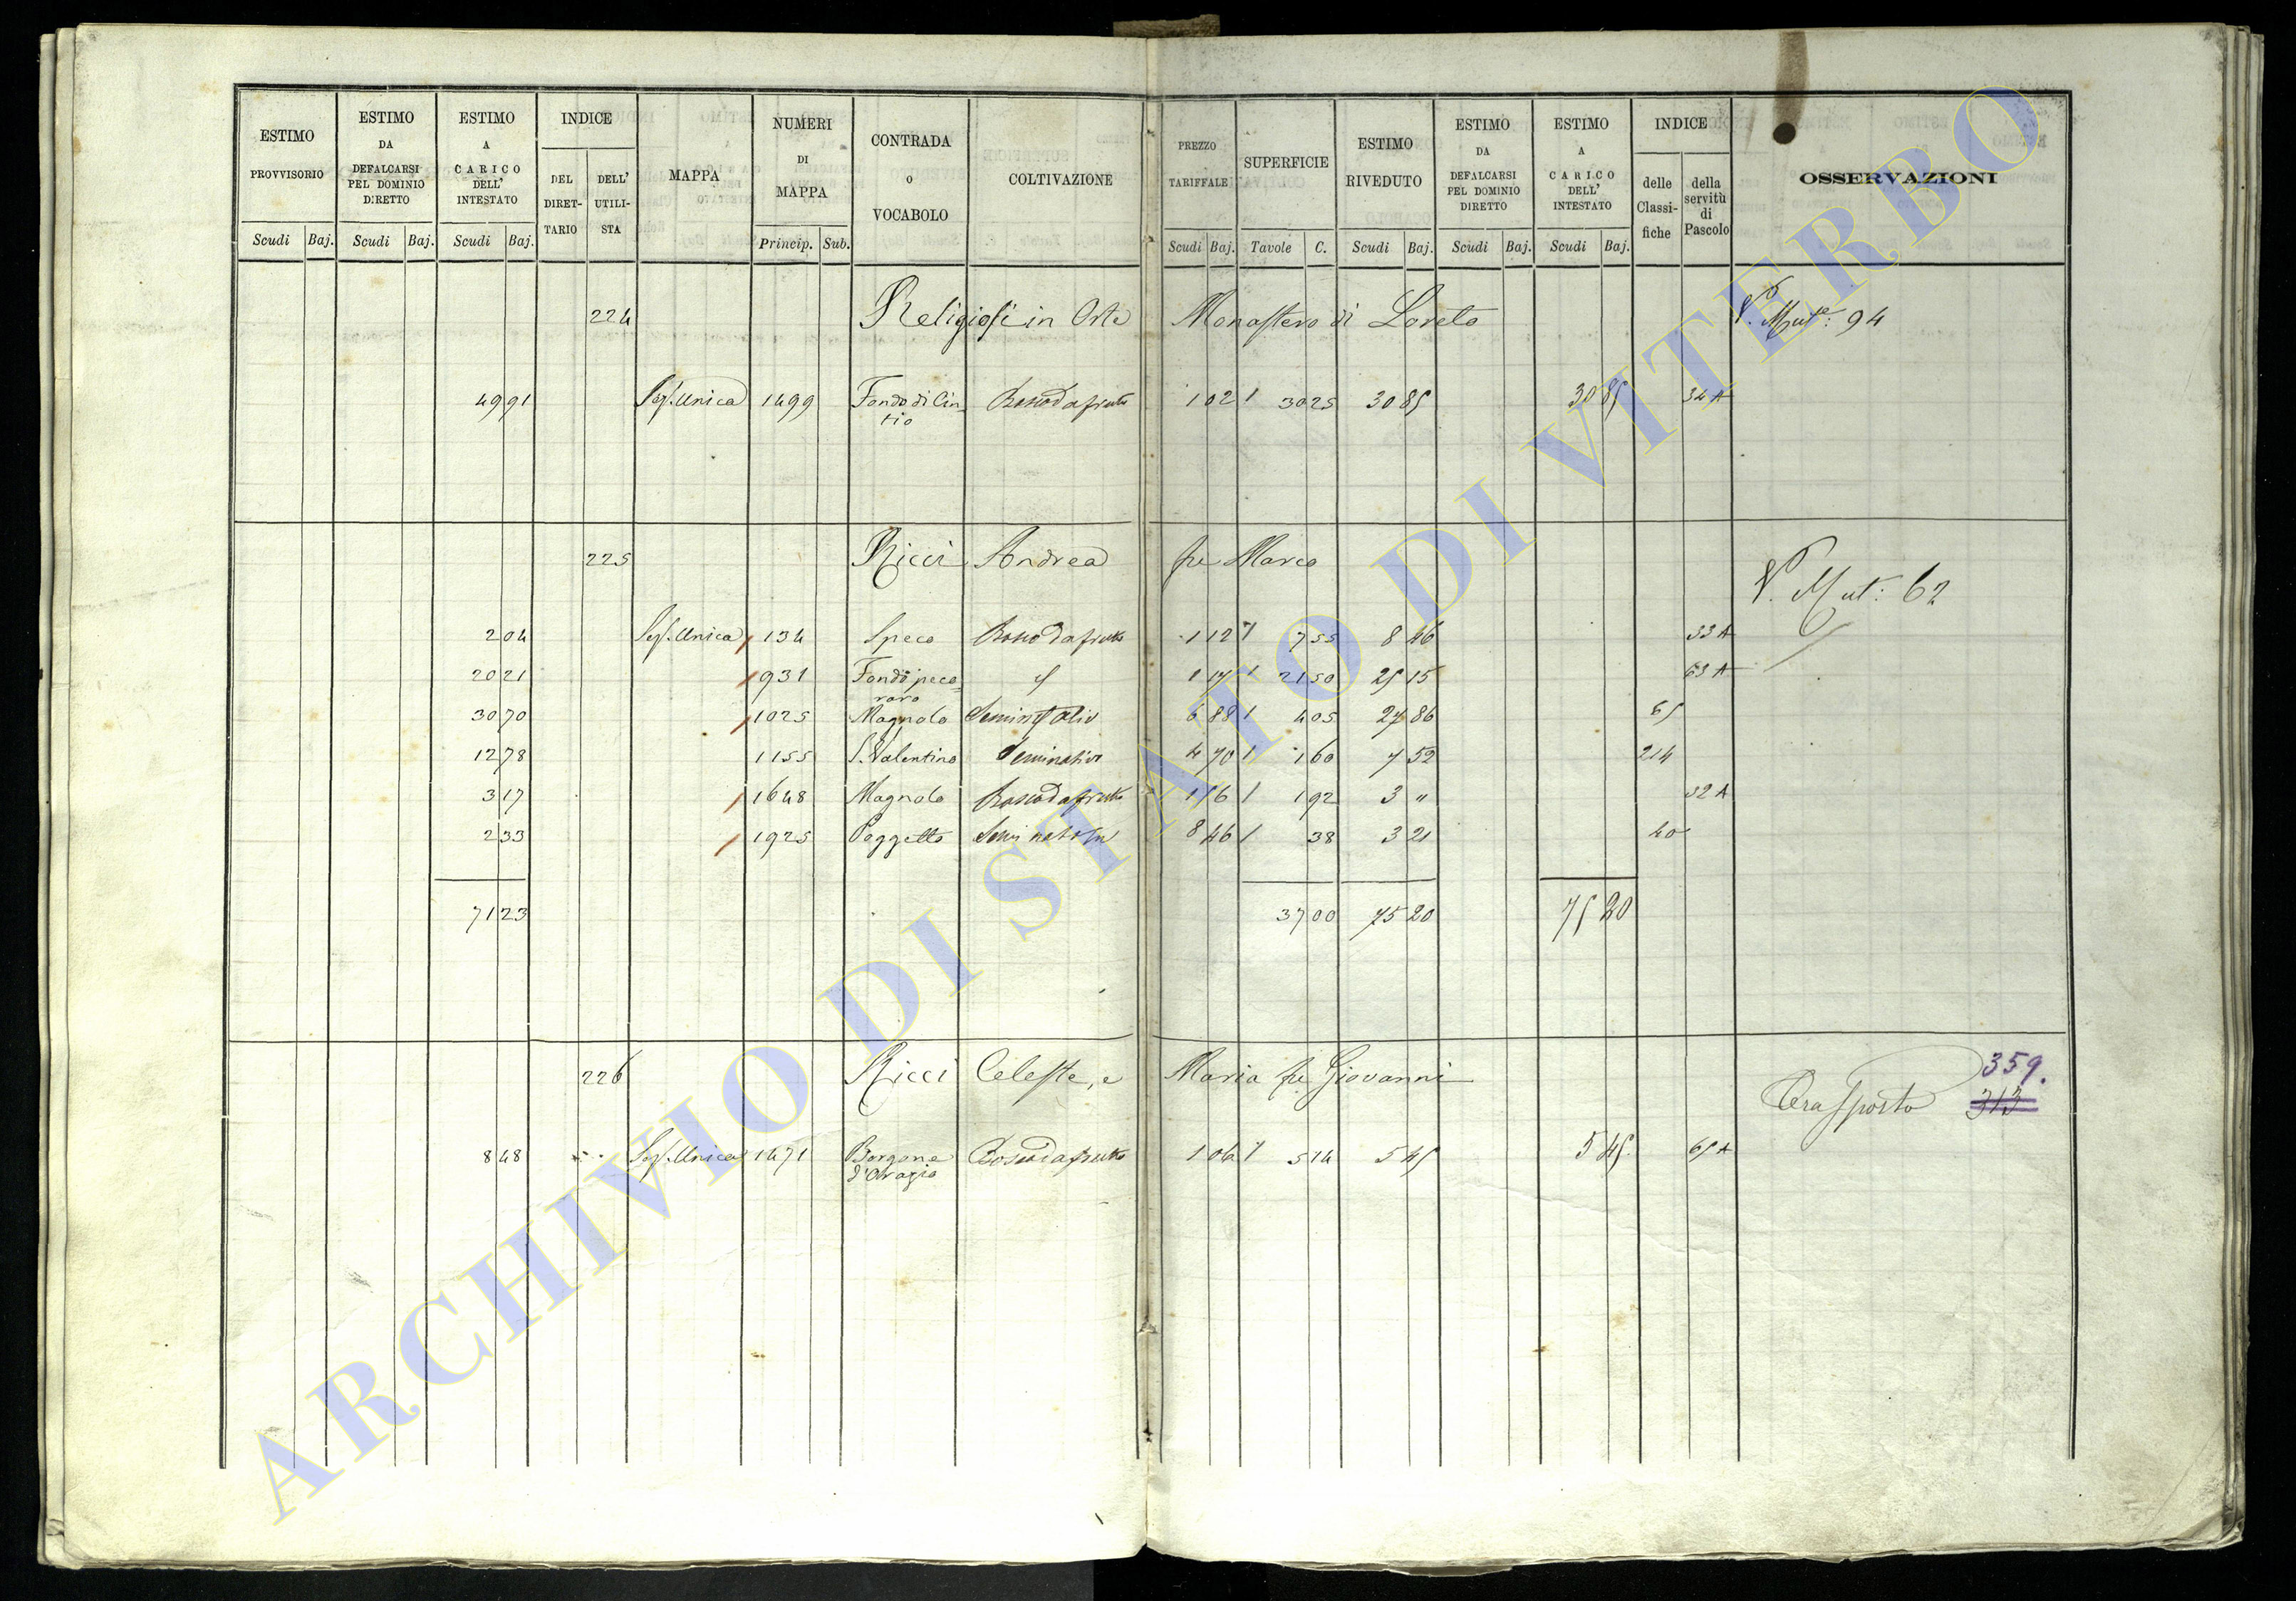 ESTIMO PROVVISORIO Scudi Baj.
ESTIMO DA DEFALCARSI PEL DOMINIO DIRETTO Scudi Baj.
ESTIMO A CARICO DELL' INTESTATO Scudi Baj.
INDICE DEL DIRET-TARIO DELL' UTILI-STA
MAPPA
NUMERI DI MAPPA Princip. Sub.
CONTRADA O VOCABOLO
COLTIVAZIONE
PREZZO TARIFFALE Scudi Baj.
SUPERFICIE Tavole C.
ESTIMO RIVEDUTO Scudi Baj.
ESTIMO DA DEFALCARSI PEL DOMINIO DIRETTO Scudi Baj.
ESTIMO A CARICO DELL' INTESTATO Scudi Baj.
INDICE delle Classi-fiche della servitù di Pascolo
OSSERVAZIONI
224 Religiosi in Orte Monastero di Loreto 94
49 91 Sez. Unica 1499 Fondo di Cin- Bosco da frutto 1 02 30 25 30 85 30 85 34 A
tio
225 Ricci Andrea fu Marco V. Mut: 62
2 04 Sez. Unica 134 Speco Bosco da frutto 1 12 7 55 8 46 33 A
20 21 931 Fondo peco- 21 50 25 15 63 A
raro
30 70 1025 Magnalo 6 88 4 05 27 86 65
12 78 1155 S. Valentino Seminativo 4 70 1 60 7 52 214
3 17 1648 Magnalo Bosco da frutto 1 56 1 92 3 " 32 A
2 33 1925 Poggetto 8 46 38 3 21 40
71 23 37 00 75 20 75 20
226 Ricci Celeste, e Maria fu Giovanni Trasporto 359.
313
8 48 Sez. Unica 1471 Borgone Bosco da frutto 1 06 5 14 5 45 5 45 65 A
d'Orazio
ARCHIVIO DI STATO DI VITERBO